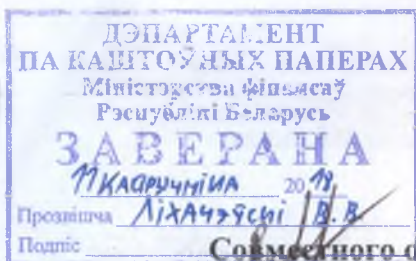 ДЭПАРТАМЕНТ
ПА КАШТОЎНЫХ ПАПЕРАХ
Міністэрства фінансаў
Рэспублікі Беларусь
ЗАВЕРАНА
11 20
Прозвішча ЛІХАЧЭЎСКІ В.В.
Подпіс Совместного о